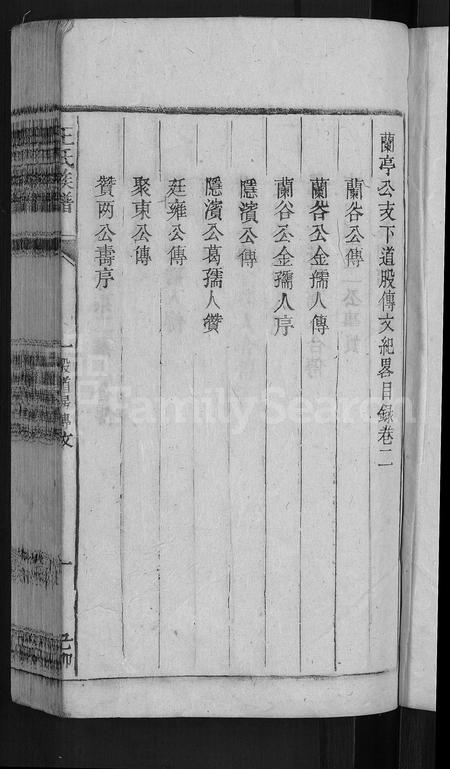 蘭亭公支下道股傳文紀畧目錄卷二
蘭谷公傳
蘭谷公金孺人傳
蘭谷公金孺人序
隱濱公傳
隱濱公葛孺人贊
廷雍公傳
聚東公傳
贊两公壽序
王氏族譜
FamilySearch